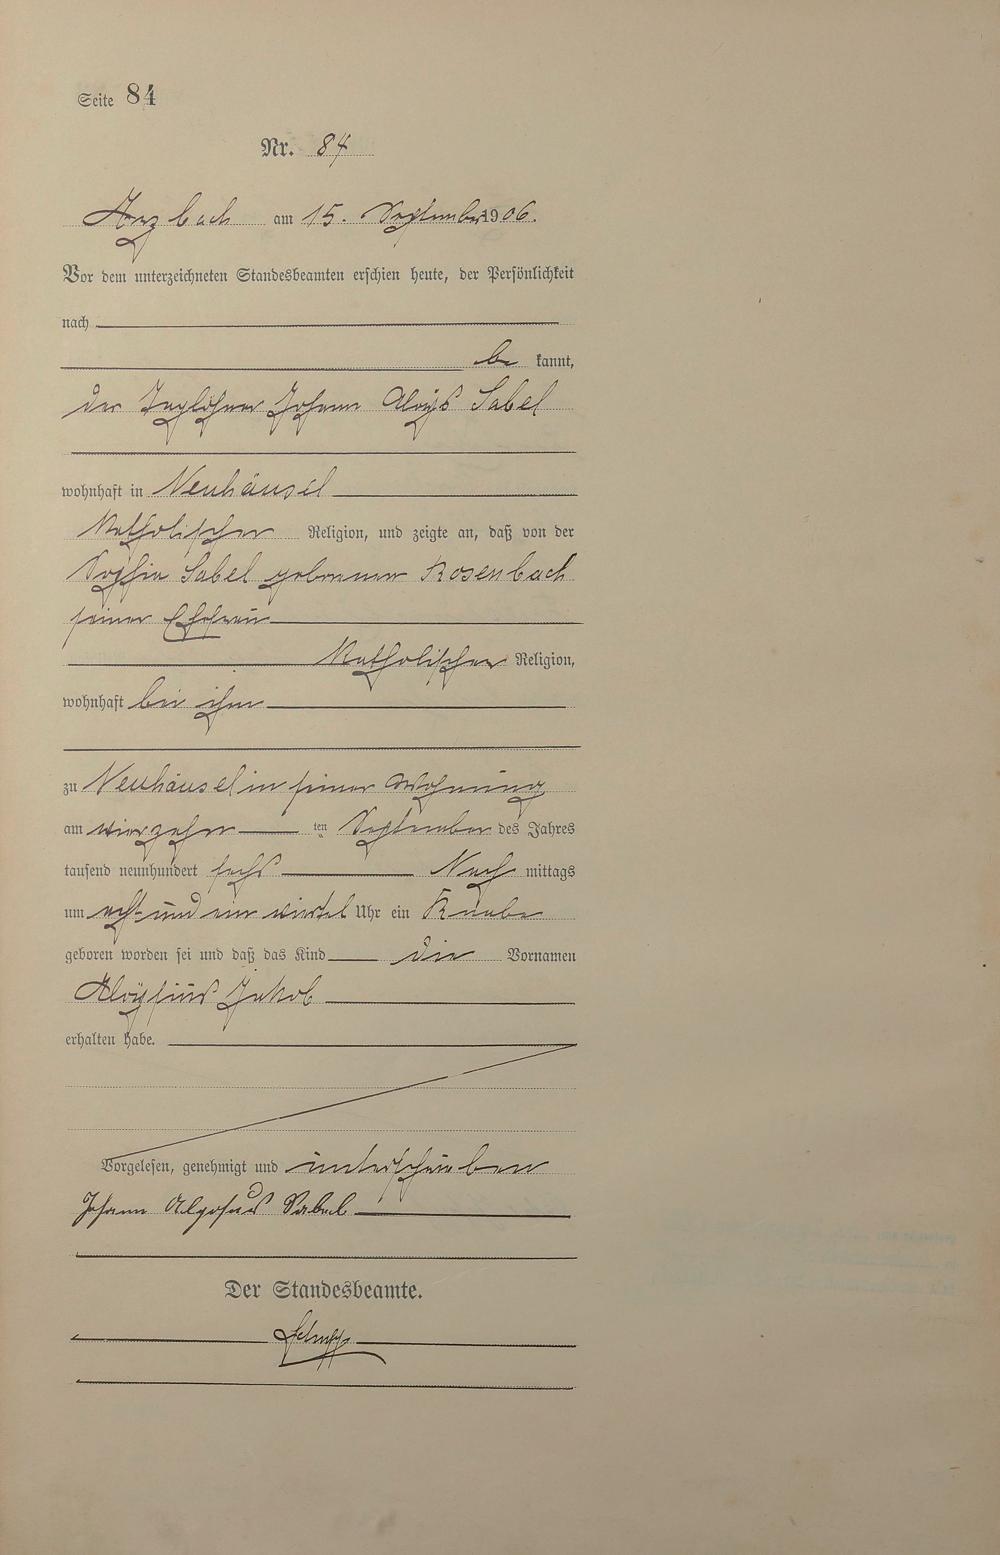 Seite 84
Nr. 84
Arzbach am 15. September 1906.
Vor dem unterzeichneten Standesbeamten erschien heute, der Persönlichkeit
nach
be kannt,
der Taglöhner Johann Aloys Sabel
wohnhaft in Neuhäusel
Katholischer Religion, und zeigte an, daß von der
Sophia Sabel geborener Rosenbach
seiner Ehefrau
Katholischer Religion,
wohnhaft bei ihm
zu Neuhäusel in seiner Wohnung
am vierzehn ten September des Jahres
tausend neunhundert sechs Nach mittags
um acht und ein viertel Uhr ein Knabe
geboren worden sei und daß das Kind die Vornamen
Aloysius Jakob
erhalten habe.
Vorgelesen, genehmigt und unterschrieben
Johann Aloysius Sabel
Der Standesbeamte.